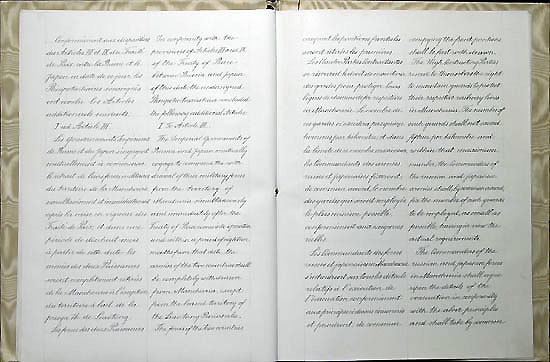 Conformément aux dispositions
des Articles III et IX du Traité
de Paix entre la Russie et le
Japon en date de ce jour, les
Plénipotentiaires soussignés
ont conclu les Articles
additionnels suivants:
I ad Article III.
Les Gouvernements Impériaux
de Russie et du Japon s'engagent
mutuellement à commencer
le retrait de leurs forces militaires
du territoire de la Mandchourie
simultanément et immédiatement
après la mise en vigueur du
Traité de Paix; et dans une
période de dix-huit mois
à partir de cette date les
armées des deux Puissances
seront complètement retirées
de la Mandchourie, à l'exception
du territoire à bail de la
presqu'île de Liaotong.
Les forces des deux Puissances
In conformity with the
provisions of Articles III and IX
of the Treaty of Peace
between Russia and Japan
of this date, the undersigned
Plenipotentiaries have concluded
the following additional Articles:
I To Article III.
The Imperial Governments of
Russia and Japan mutually
engage to commence the with-
drawal of their military forces
from the territory of
Manchuria simultaneously
and immediately after the
Treaty of Peace comes into operation
and within a period of eighteen
months from that date, the
armies of the two countries shall
be completely withdrawn
from Manchuria, except
from the leased territory of
the Liaotung Peninsula.
The forces of the two countries
occupant les positions frontales
seront retirées les premières.
Les Hautes Parties Contractantes
se réservent le droit de maintenir
des gardes pour protéger leurs
lignes de chemin de fer respectives
en Mandchourie. Le nombre de
ces gardes n'excédera pas quinze
hommes par kilomètre; et dans
la limite de ce nombre maximum,
les Commandants des armées
russes et japonaises fixeront,
de commun accord, le nombre
des gardes qui seront employés
le plus minime possible,
conformément aux exigences
réelles.
Les Commandants des forces
russes et japonaises en Mandchourie
s'entendront sur tous les détails
relatifs à l'exécution de
l'évacuation conformément
aux principes ci-dessus énoncés
et prendront de commun
occupying the front positions
shall be first withdrawn.
The High Contracting Parties
reserve to themselves the right
to maintain guards to protect
their respective railway lines
in Manchuria. The number of
such guards shall not exceed
fifteen per kilometre and
within that maximum
number, the Commanders of
the Russian and Japanese
armies shall, by common accord,
fix the number of such guards
to be employed, as small as
possible having in view the
actual requirements.
The Commanders of the
Russian and Japanese forces
in Manchuria shall agree
upon the details of the
evacuation in conformity
with the above principles
and shall take by common